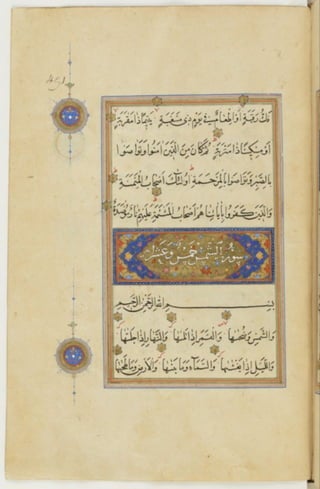 فك رقبة أو إطعام في يوم ذي مسغبة يتيما ذا مقربة
أو مسكينا ذا متربة ثم كان من الذين آمنوا وتواصوا
بالصبر وتواصوا بالمرحمة أولئك أصحاب الميمنة
والذين كفروا بآياتنا هم أصحاب المشئمة عليهم نار مؤصدة
سورة الشمس خمس وعشر
بسم الله الرحمن الرحيم
والشمس وضحيها والقمر إذا تليها والنهار إذا جليها
والليل إذا يغشيها والسماء وما بنيها والأرض وما طحيها